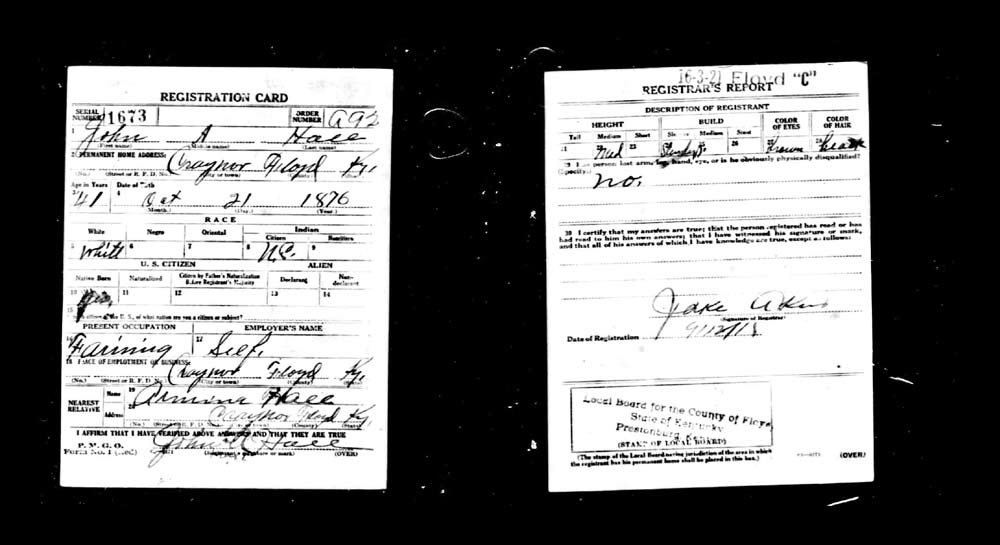 REGISTRATION CARD
SERIAL NUMBER 1673 ORDER NUMBER A92
1 John A Hall
(First name) (Last name)
2 PERMANENT HOME ADDRESS: Craynor Floyd Ky.
(No.) (Street or R. F. D. No.) (City or town) (County) (State)
Age in Years Date of Birth
3 41 4 Oct 21 1876
(Month.) (Day.) (Year.)
RACE
White Negro Oriental Indian
Citizen Noncitizen
5 White 6 7 8 9
U. S. CITIZEN ALIEN
Native Born Naturalized Citizen by Father's Naturalization Before Registrant's Majority Declarant Non-declarant
10 Yes 11 12 13 14
15 If not a citizen of the U. S., of what nation are you a citizen or subject?
PRESENT OCCUPATION EMPLOYER'S NAME
16 Farming 17 Self.
18 PLACE OF EMPLOYMENT OR BUSINESS:
Craynor Floyd Ky.
(No.) (Street or R. F. D. No.) (City or town) (County) (State)
NEAREST RELATIVE Name 19 Hall
Address 20 Craynor Floyd Ky.
(No.) (Street or R. F. D. No.) (City or town) (County) (State)
I AFFIRM THAT I HAVE VERIFIED ABOVE ANSWERS AND THAT THEY ARE TRUE
P. M. G. O.
Form No. 1 (Red) John A Hall
(Registrant's signature or mark) (OVER)
16-3-21 Floyd "C"
REGISTRAR'S REPORT
DESCRIPTION OF REGISTRANT
HEIGHT BUILD COLOR OF EYES COLOR OF HAIR
Tall Medium Short Slender Medium Stout
21 22 Med 23 24 Slender 25 26 27 Brown 28
29 Has person lost arm, leg, hand, eye, or is he obviously physically disqualified?
(Specify.) no.
30 I certify that my answers are true; that the person registered has read or has
had read to him his own answers; that I have witnessed his signature or mark,
and that all of his answers of which I have knowledge are true, except as follows:
Jake Akers
(Signature of Registrar)
Date of Registration 9/12/18
Local Board for the County of Floyd
State of Kentucky
Prestonburg, Ky.
(STAMP OF LOCAL BOARD)
(The stamp of the Local Board having jurisdiction of the area in which
the registrant has his permanent home shall be placed in this box.)
(OVER)